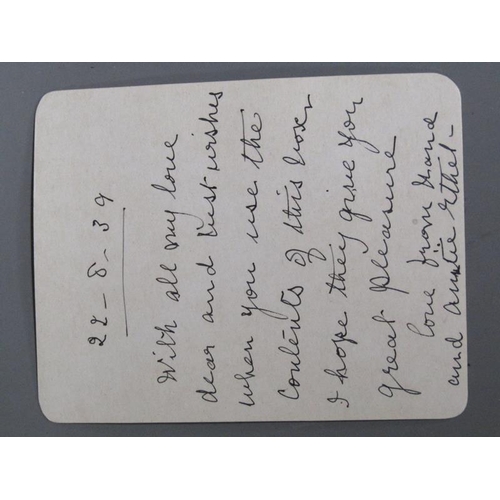 22-8-39
With all my love
dear and best wishes
when you use the
contents of this box
I hope they give you
great pleasure
love from
and Auntie Ethel-